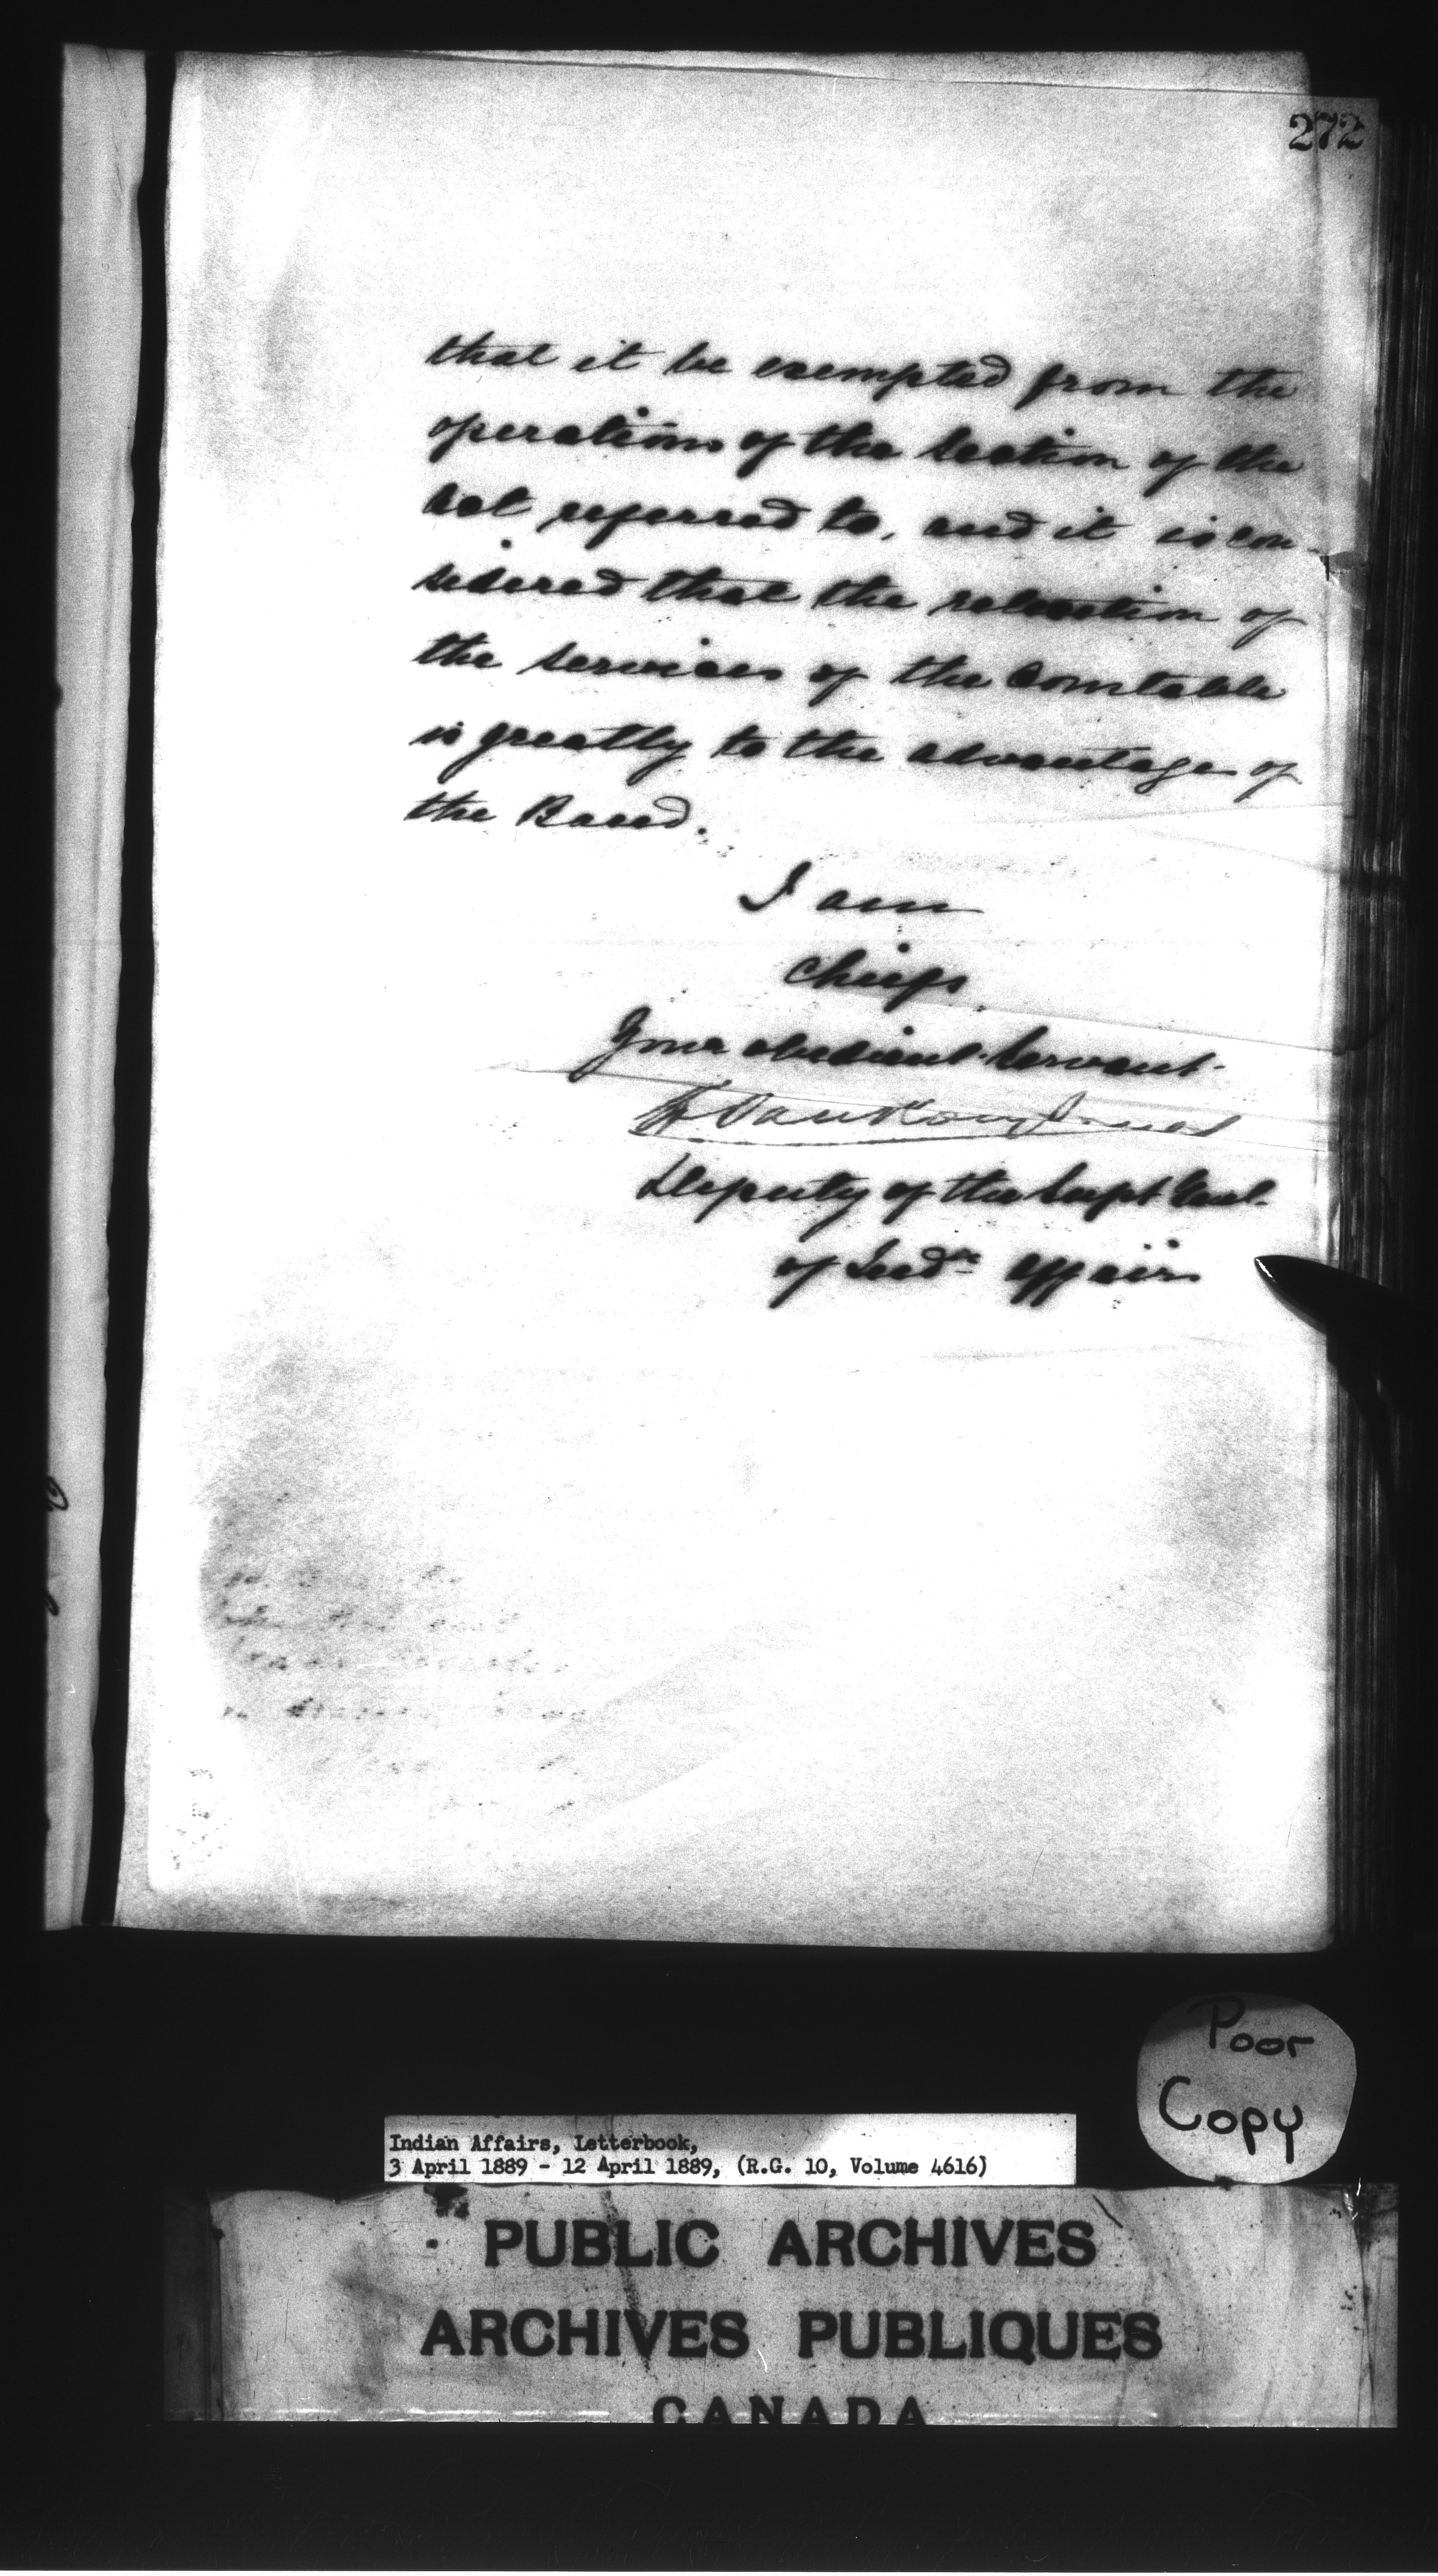 272
that it be exempted from the
operations of the section of the
Act referred to, and it is con-
sidered that the retention of
the services of the Constable
is greatly to the advantage of
the Band.
I am
Chiefs
Your obedient Servant
L. VanKoughnet
Deputy of the Supt Genl.
of Indn Affairs
Poor
Copy
Indian Affairs, Letterbook,
3 April 1889 - 12 April 1889, (R.G. 10, Volume 4616)
PUBLIC ARCHIVES
ARCHIVES PUBLIQUES
CANADA